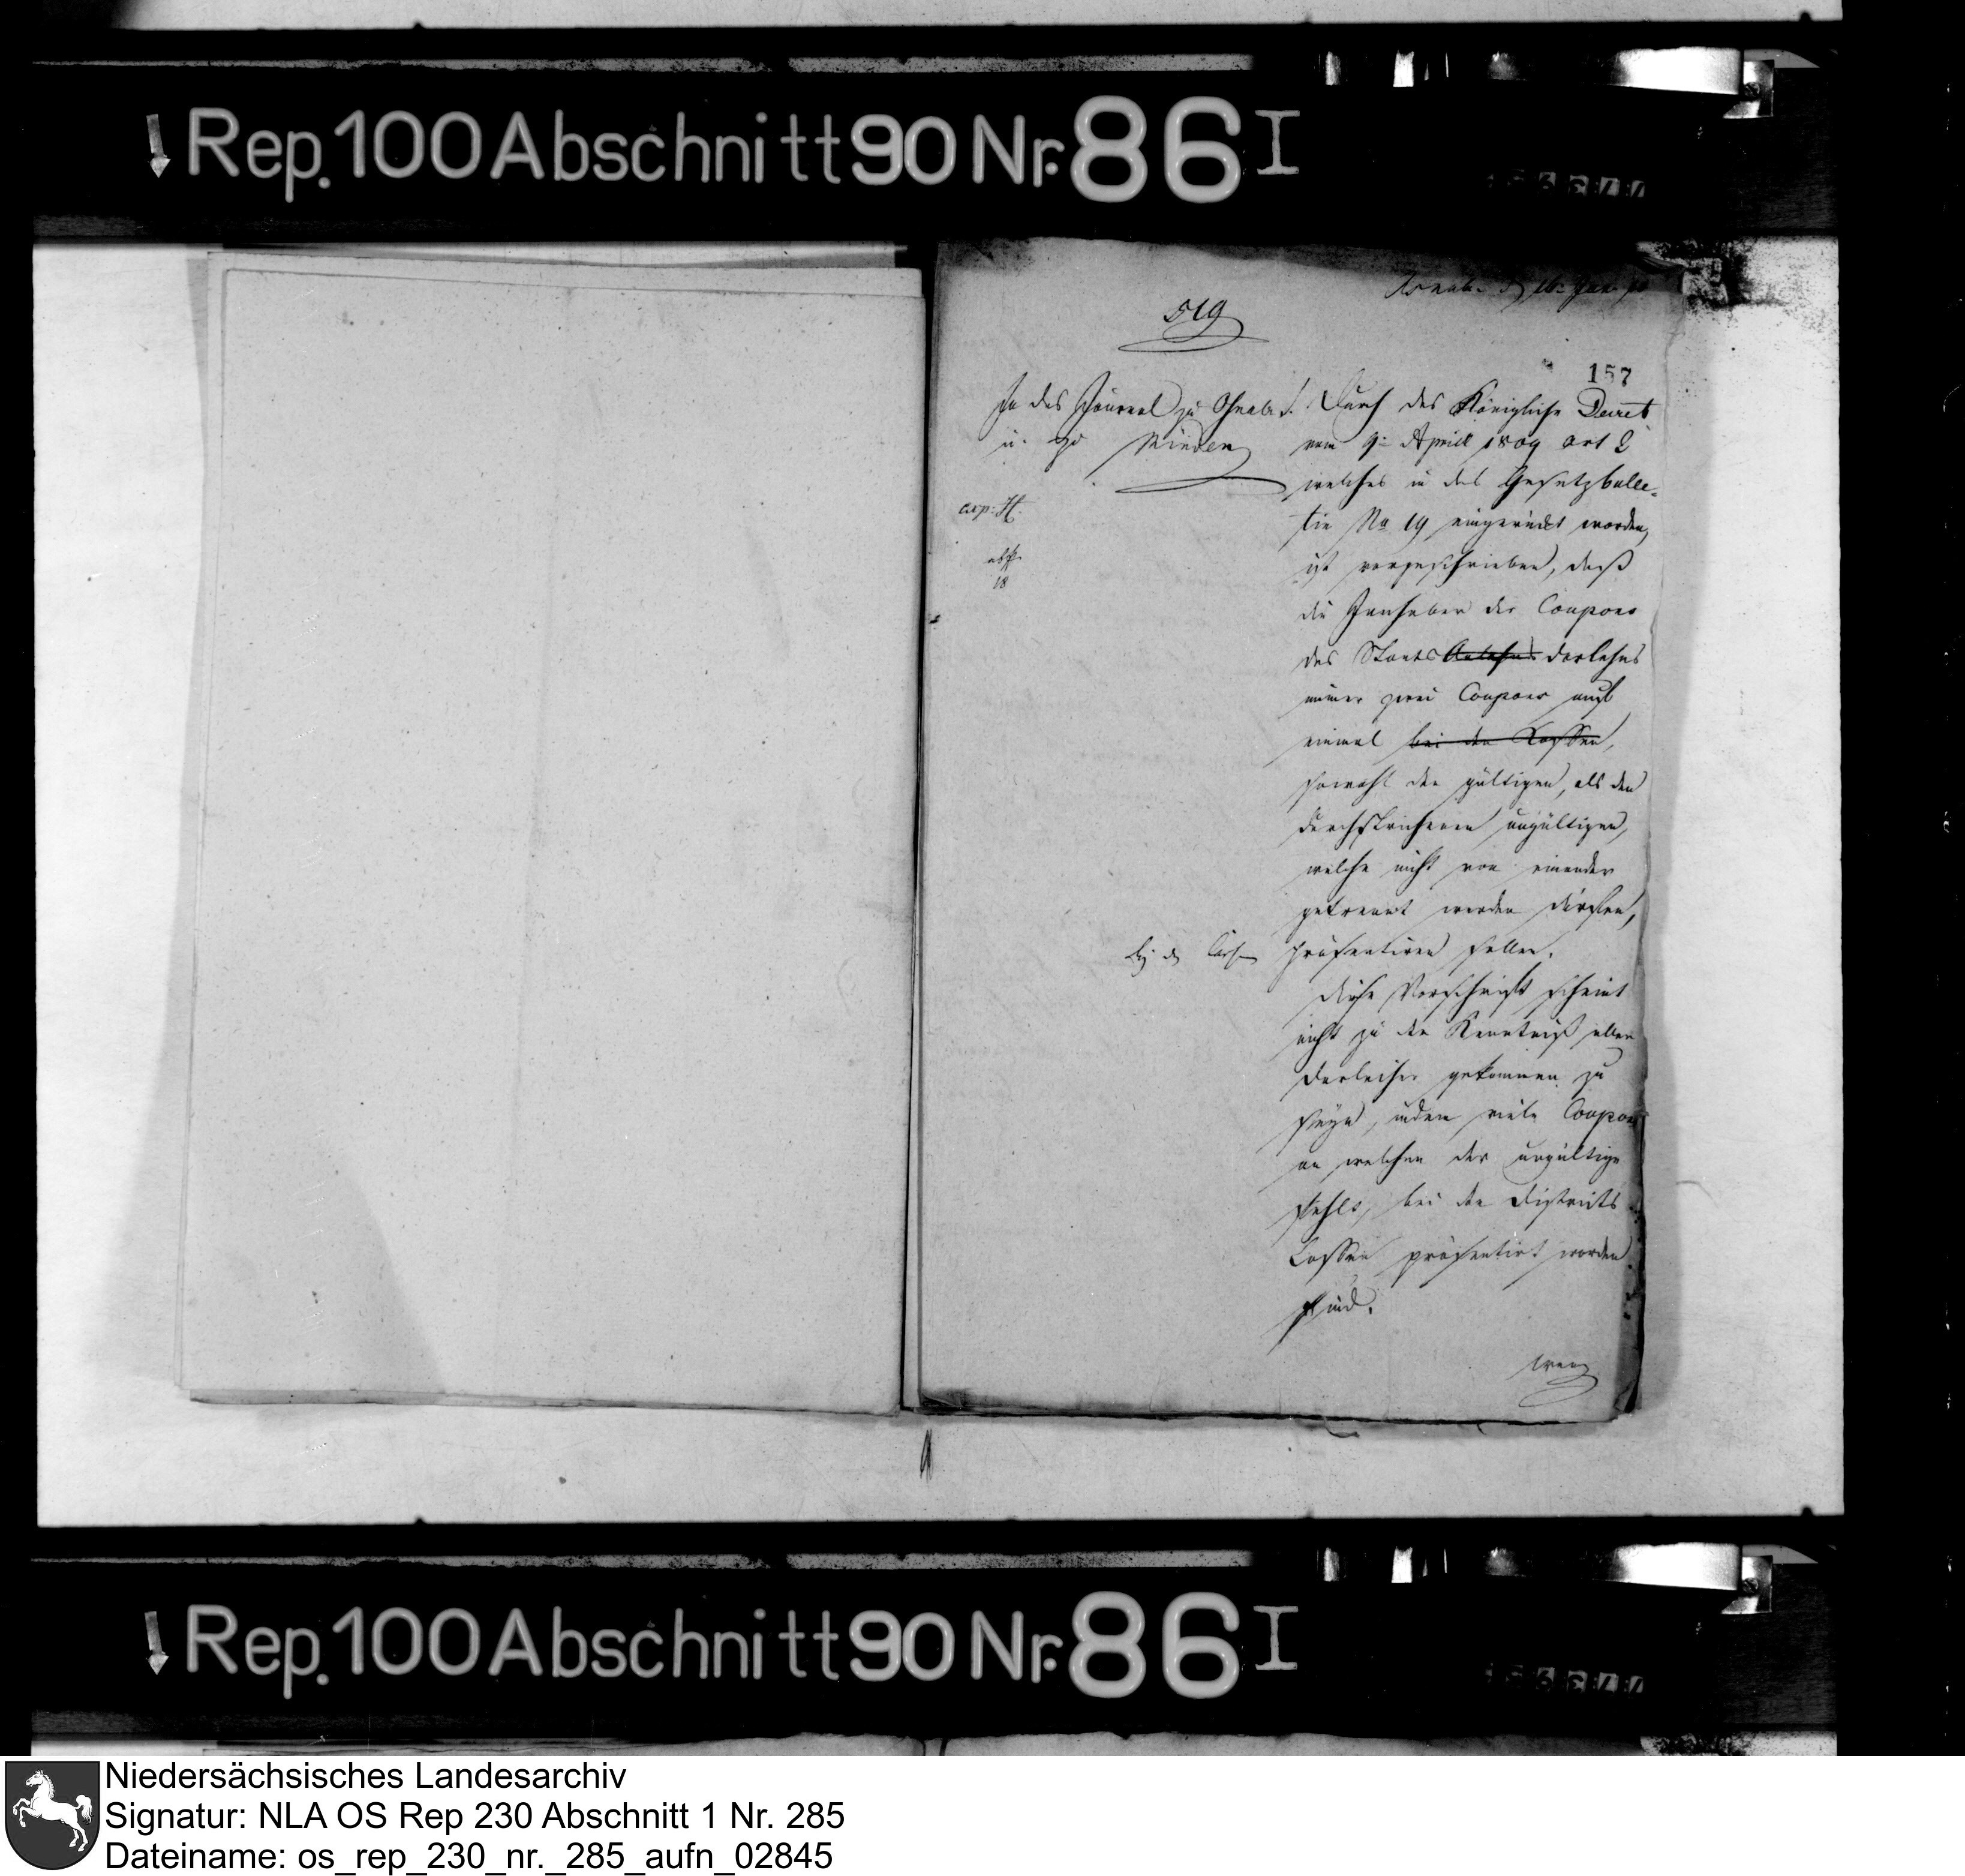 Rep. 100 Abschnitt 90 Nr. 86 I
Osnab. d 16. Jan. 10
519
157
In das Journal zu Osnabr.
u. zu Minden
exp: H.
abg.
18
Durch das Königliche Decret
vom 9ᵗ Aprill 1809 art 2
welches in das Gesetzbulle-
tin No 19 eingerückt worden,
ist vorgeschrieben, daß
die Innhaber der Coupons
des Staats Anlehns darlehns
immer zwei Coupons auf
einmal bei den Kassen,
sowohl den gültigen, als den
durchstrichenen ungültigen,
welche nicht von einander
getrennt werden dürfen,
bey den Cassen präsentiren sollen.
Diese Vorschrift scheint
nicht zu der Kenntniß aller
Darleiher gekommen zu
seyn, indem viele Coupons
an welchen der ungültige
fehlt, bei den Districts
Cassen präsentirt worden
sind.
Rep. 100 Abschnitt 90 Nr. 86 I
Niedersächsisches Landesarchiv
Signatur: NLA OS Rep 230 Abschnitt 1 Nr. 285
Dateiname: os_rep_230_nr._285_aufn_02845